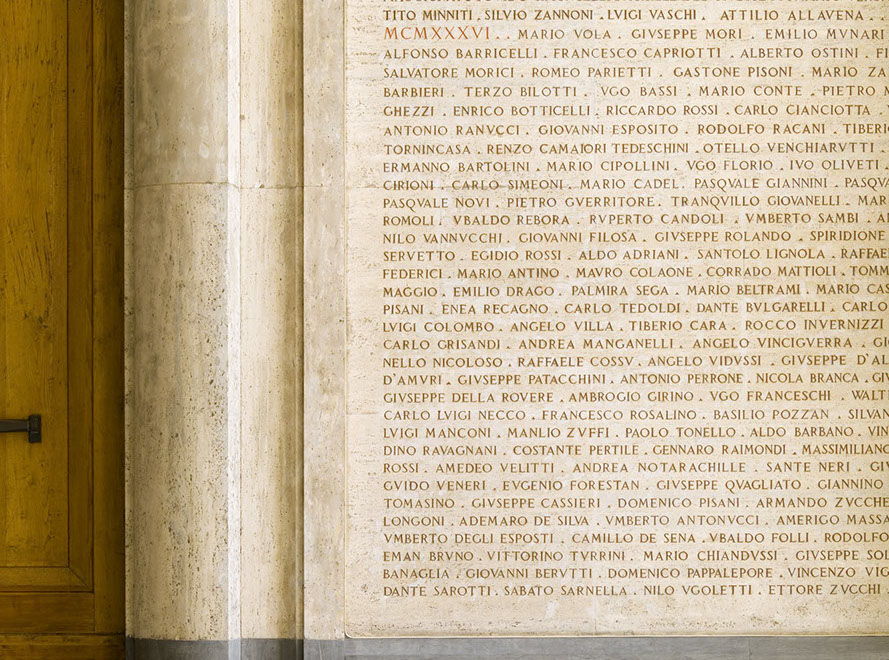 TITO MINNITI . SILVIO ZANNONI . LVIGI VASCHI . ATTILIO ALLAVENA . .
MCMXXXVI . . MARIO VOLA . GIVSEPPE MORI . EMILIO MVNARI
ALFONSO BARRICELLI . FRANCESCO CAPRIOTTI . ALBERTO OSTINI . FI
SALVATORE MORICI . ROMEO PARIETTI . GASTONE PISONI . MARIO ZA
BARBIERI . TERZO BILOTTI . VGO BASSI . MARIO CONTE . PIETRO M
GHEZZI . ENRICO BOTTICELLI . RICCARDO ROSSI . CARLO CIANCIOTTA .
ANTONIO RANVCCI . GIOVANNI ESPOSITO . RODOLFO RACANI . TIBERIO
TORNINCASA . RENZO CAMAIORI TEDESCHINI . OTELLO VENCHIARVTTI .
ERMANNO BARTOLINI . MARIO CIPOLLINI . VGO FLORIO . IVO OLIVETI .
CIRIONI . CARLO SIMEONI . MARIO CADEL . PASQVALE GIANNINI . PASQVA
PASQVALE NOVI . PIETRO GVERRITORE . TRANQVILLO GIOVANELLI . MAR
ROMOLI . VBALDO REBORA . RVPERTO CANDOLI . VMBERTO SAMBI . A
NILO VANNVCCHI . GIOVANNI FILOSA . GIVSEPPE ROLANDO . SPIRIDIONE
SERVETTO . EGIDIO ROSSI . ALDO ADRIANI . SANTOLO LIGNOLA . RAFFAE
FEDERICI . MARIO ANTINO . MAVRO COLAONE . CORRADO MATTIOLI . TOMM
MAGGIO . EMILIO DRAGO . PALMIRA SEGA . MARIO BELTRAMI . MARIO CAS
PISANI . ENEA RECAGNO . CARLO TEDOLDI . DANTE BVLGARELLI . CARLO
LVIGI COLOMBO . ANGELO VILLA . TIBERIO CARA . ROCCO INVERNIZZI
CARLO GRISANDI . ANDREA MANGANELLI . ANGELO VINCIGVERRA . GIO
NELLO NICOLOSO . RAFFAELE COSSV . ANGELO VIDVSSI . GIVSEPPE D'AL
D'AMVRI . GIVSEPPE PATACCHINI . ANTONIO PERRONE . NICOLA BRANCA . GIV
GIVSEPPE DELLA ROVERE . AMBROGIO GIRINO . VGO FRANCESCHI . WALT
CARLO LVIGI NECCO . FRANCESCO ROSALINO . BASILIO POZZAN . SILVAN
LVIGI MANCONI . MANLIO ZVFFI . PAOLO TONELLO . ALDO BARBANO . VIN
DINO RAVAGNANI . COSTANTE PERTILE . GENNARO RAIMONDI . MASSIMILIANO
ROSSI . AMEDEO VELITTI . ANDREA NOTARACHILLE . SANTE NERI . GIV
GVIDO VENERI . EVGENIO FORESTAN . GIVSEPPE QVAGLIATO . GIANNINO
TOMASINO . GIVSEPPE CASSIERI . DOMENICO PISANI . ARMANDO ZVCCHE
LONGONI . ADEMARO DE SILVA . VMBERTO ANTONVCCI . AMERIGO MASSA
VMBERTO DEGLI ESPOSTI . CAMILLO DE SENA . VBALDO FOLLI . RODOLFO
EMAN BRVNO . VITTORINO TVRRINI . MARIO CHIANDVSSI . GIVSEPPE SOL
BANAGLIA . GIOVANNI BERVTTI . DOMENICO PAPPALEPORE . VINCENZO VIG
DANTE SAROTTI . SABATO SARNELLA . NILO VGOLETTI . ETTORE ZVCCHI .